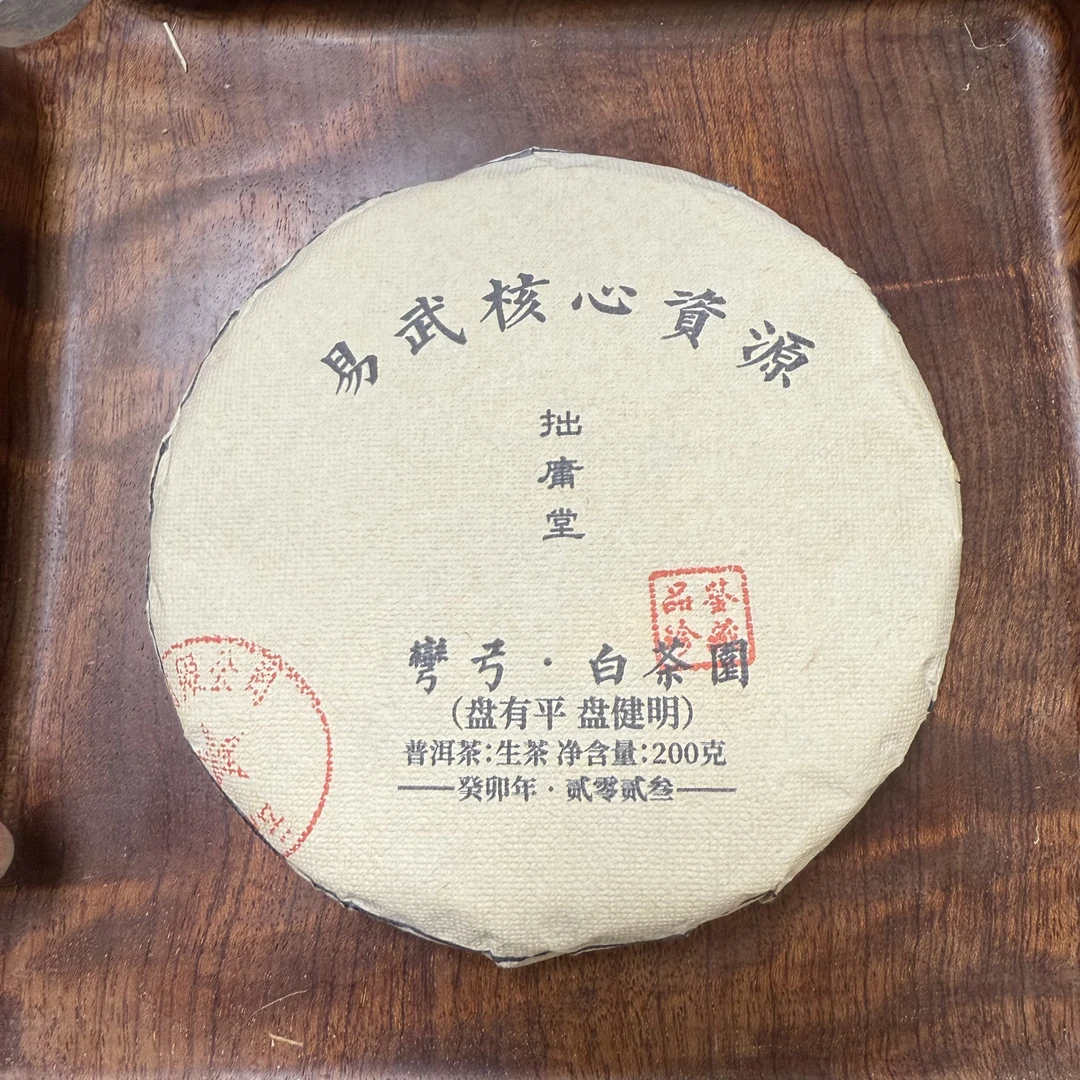 易武核心資源
拙庸堂
鉴藏
品珍
彎弓·白茶園
(盘有平 盘健明)
普洱茶:生茶 净含量:200克
癸卯年·贰零贰叁
限公司